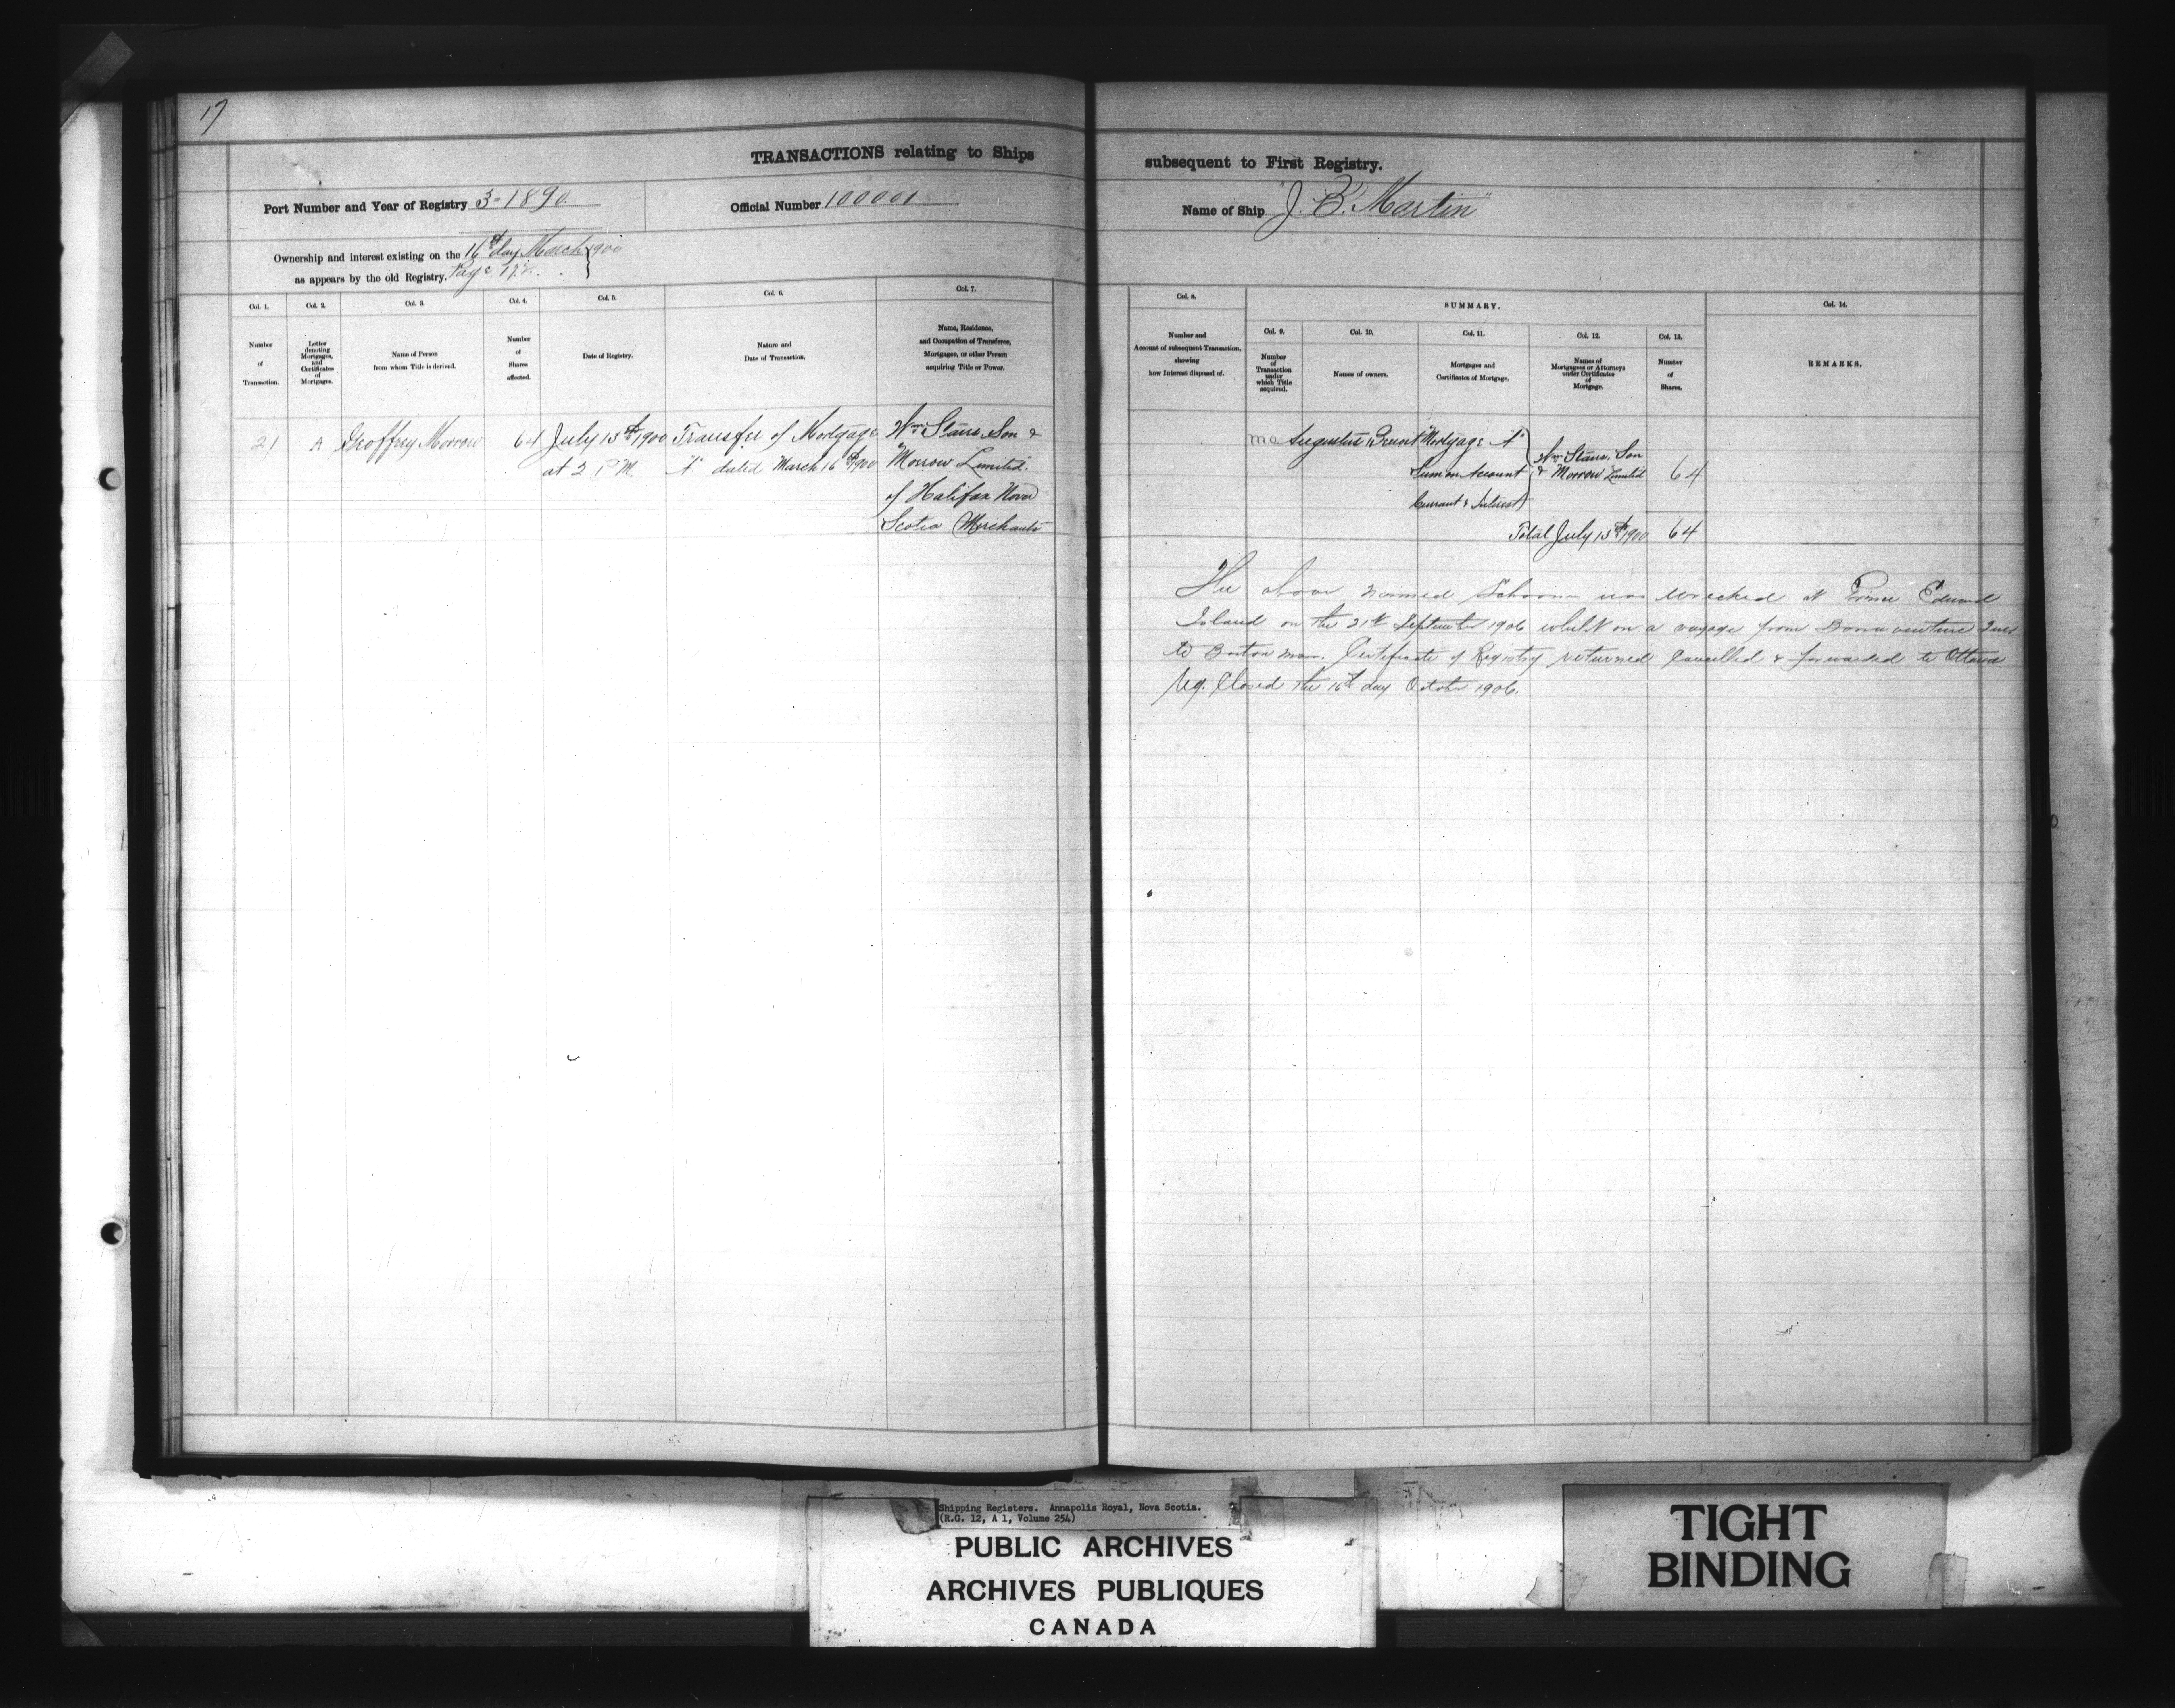 17
TRANSACTIONS relating to Ships subsequent to First Registry.
Port Number and Year of Registry 3-1890. Official Number 100001 Name of Ship "J. B. Martin"
Ownership and interest existing on the 16th day March 1900
as appears by the old Registry. Page
Col. 1.
Number
of
Transaction.
Col. 2.
Letter
denoting
Mortgages,
and
Certificates
of
Mortgages.
Col. 3.
Name of Person
from whom Title is derived.
Col. 4.
Number
of
Shares
affected.
Col. 5.
Date of Registry.
Col. 6.
Nature and
Date of Transaction.
Col. 7.
Name, Residence,
and Occupation of Transferee,
Mortgagee, or other Person
acquiring Title or Power.
21 A Geoffrey Morrow 64 July 13th 1900 Transfer of Mortgage Wm Stairs Son &
at 2 P.M. "A" dated March 16th 1900 Morrow Limited.
of Halifax Nova
Scotia Merchants
Col. 8.
Number and
Amount of subsequent Transaction,
showing
how Interest disposed of.
SUMMARY.
Col. 9.
Number
of
Transaction
under
which Title
acquired.
Col. 10.
Names of owners.
Col. 11.
Mortgages and
Certificates of Mortgage.
Col. 12.
Names of
Mortgagees or Attorneys
under Certificates
of
Mortgage.
Col. 13.
Number
of
Shares.
Col. 14.
REMARKS.
Augustus Mortgage "A"
Sum on Account
Current & Interest
Wm Stairs, Son
& Morrow Limited 64
Total July 13th 1900 64
The above named Schooner was wrecked at Prince Edward
Island on the 21st September 1906 whilst on a voyage from Bonaventure
to Boston Mass. Certificate of Registry returned Cancelled & forwarded to Ottawa
Reg. Closed the 16th day October 1906.
Shipping Registers. Annapolis Royal, Nova Scotia.
(R.G. 12, A 1, Volume 254)
PUBLIC ARCHIVES
ARCHIVES PUBLIQUES
CANADA
TIGHT
BINDING